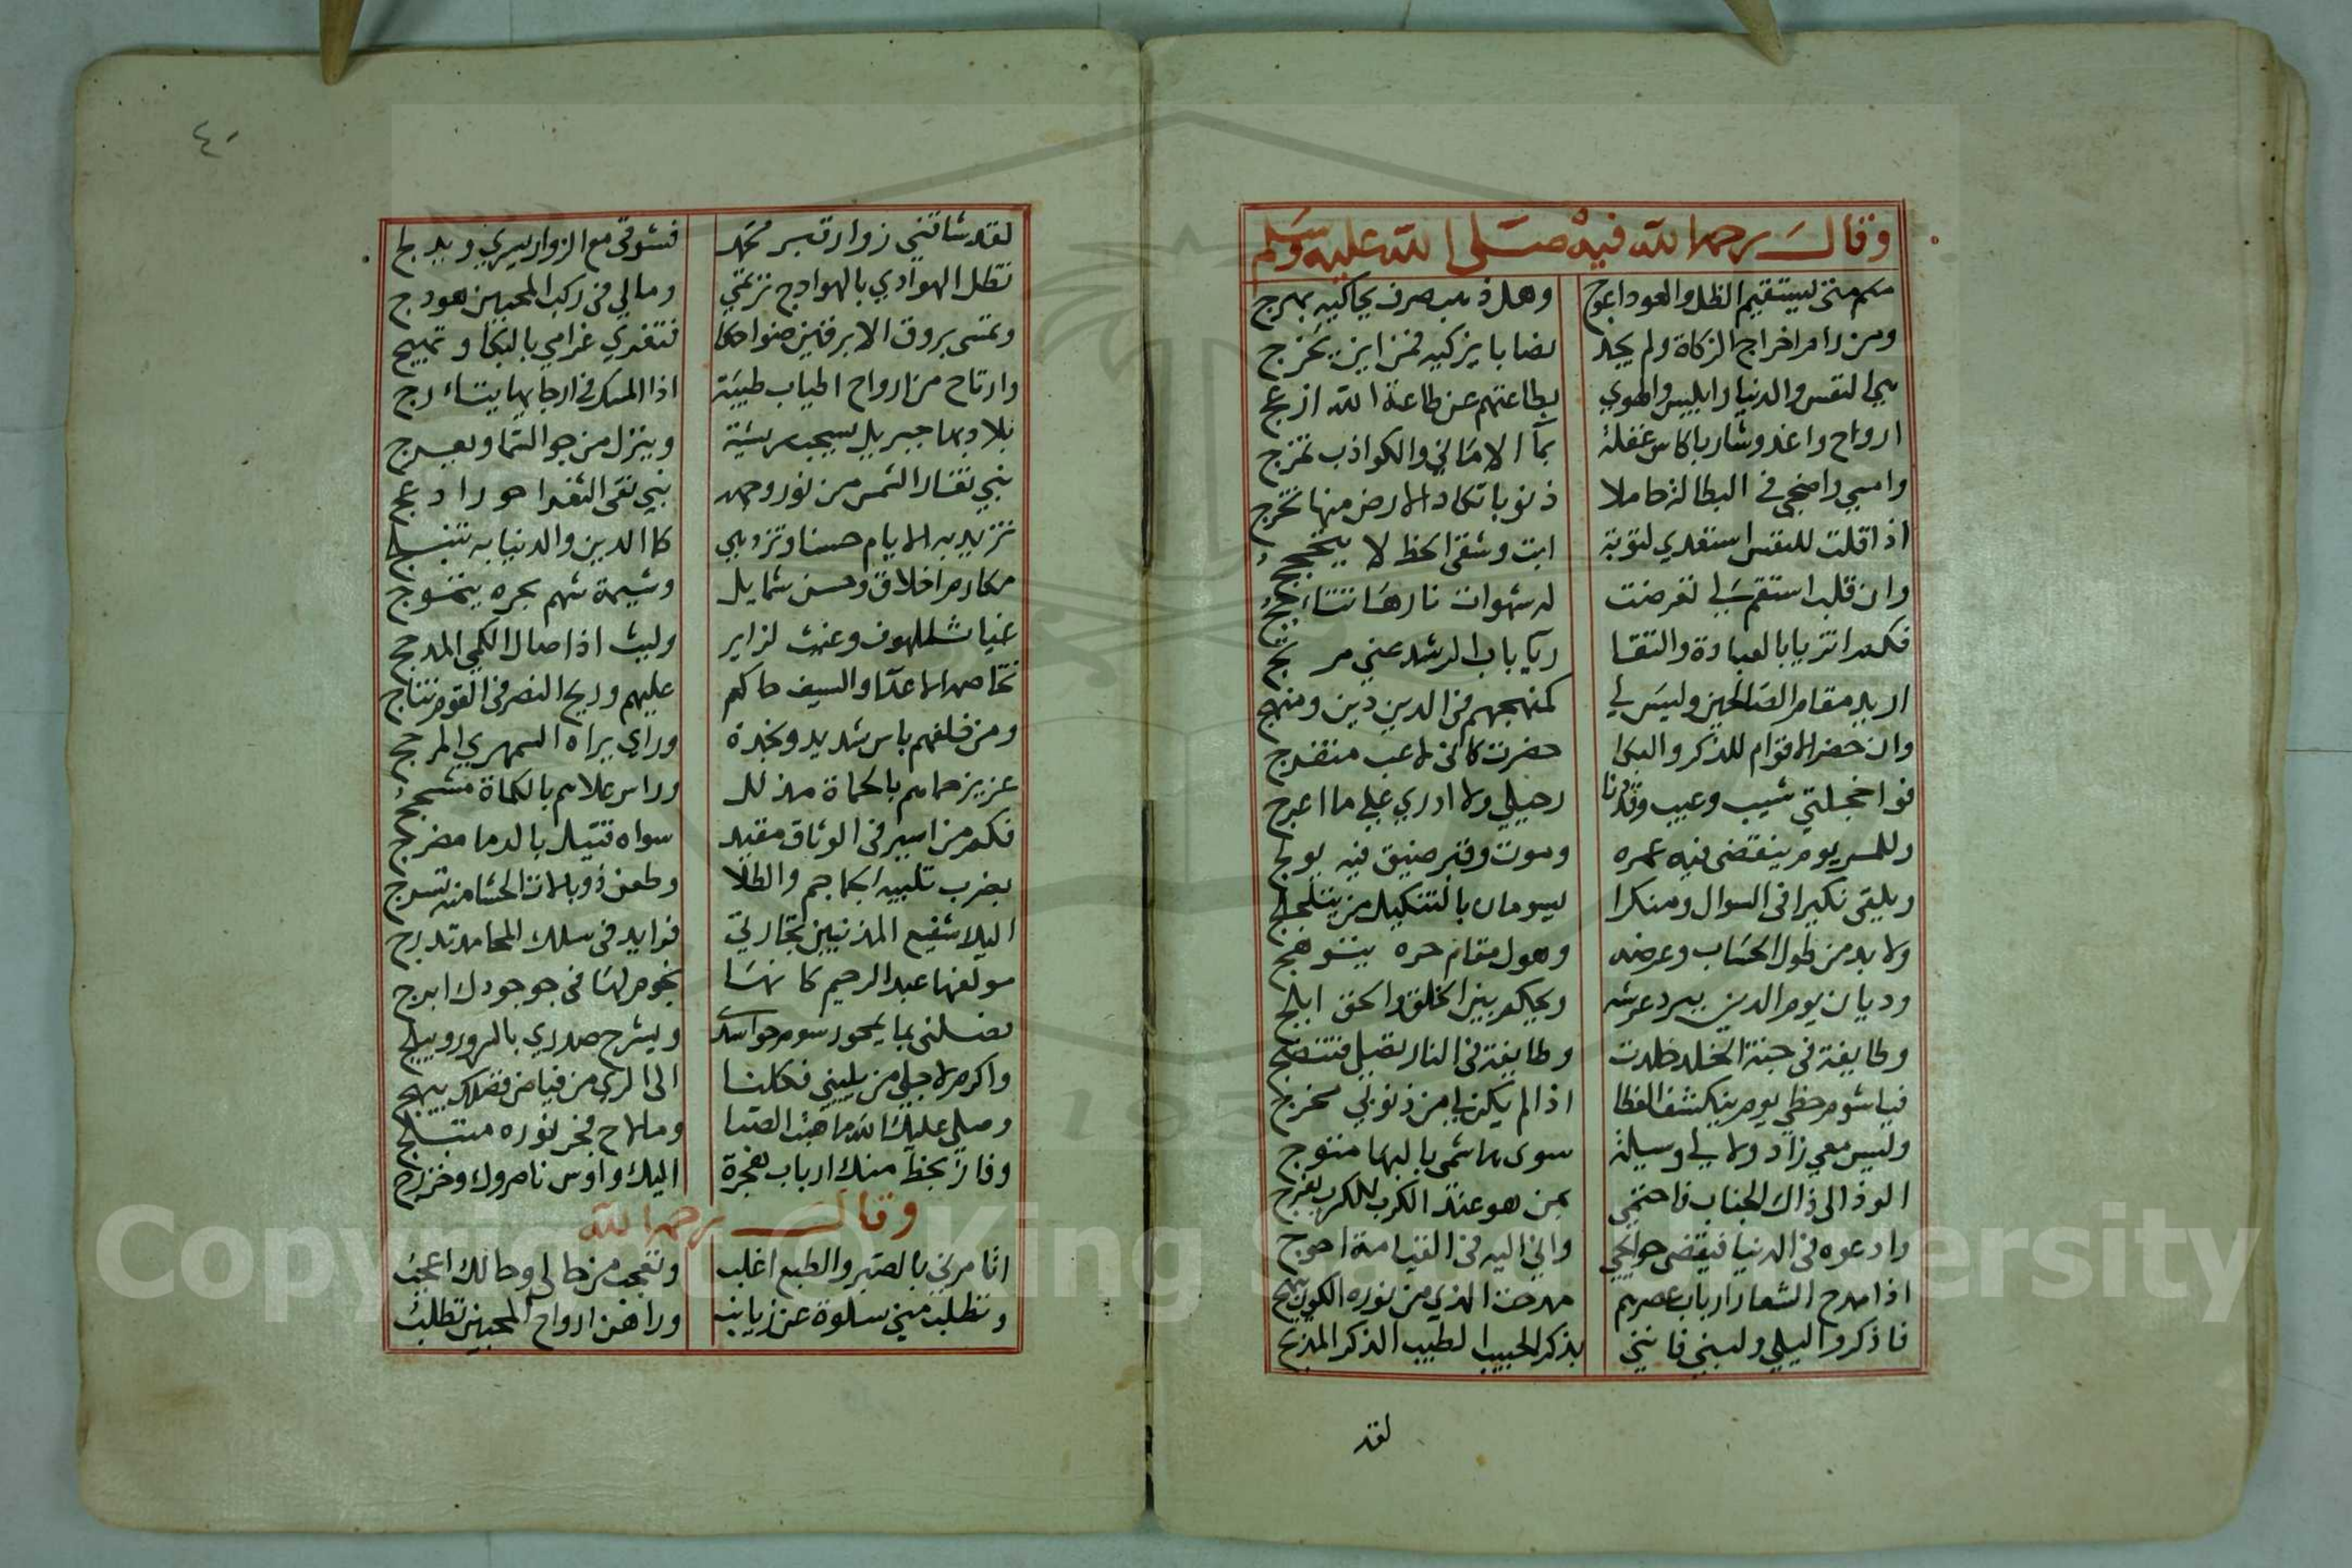 وقال رحمه الله فيه صلى الله عليه وسلم
متى يستقيم الظل والعود اعوج وهل ذهب صرف يحاكيه بهرج
ومن رام اخراج الزكاة ولم يجد نصابا يزكيه فمن اين يخرج
هي النفس والدنيا وابليس والهوي بطاعتهم عن طاعة الله ازعج
اروح واغدو شاربا كاس غفلة بما الاماني والكواذب تمزج
وامسي واضحي في البطالة حاملا ذنوبا تكاد الارض منها تخرج
اذا قلت للنفس استعدي لتوبة ابت وشقى الحظ لا
وان قلب استقم لي تعرضت له شهوات نارها تتاجج
فكم اتزيا بالعبادة والتقا وباب الرشد عني مرتج
اريد مقام الصالحين وليس لي كمنهجهم في الدين دين ومنهج
وان حضر الاقوام للذكر والبكا حضرت كاني لاعب متفرج
فوا خجلتي شيب وعيب وقد دنا رحيلي ولا ادري على ما اعرج
وللمر يوم ينقضى فيه عمره وموت وقبر ضيق فيه يولج
ويلقى نكيرا في السوال ومنكرا يسومان بالتنكيل من يتلجلج
ولا بد من طول الحساب وعرضه وهول مقام حره يتوهج
وديان يوم الدين يبرز عرشه ويحكم بين الخلق والحق ابلج
وطايفة في جنة الخلد خلدت وطايفة في النار تصلى فتنضج
فيا شوم حظي يوم ينكشف الغطا اذا لم يكن لي من ذنوبي مخرج
وليس معي زاد ولا لي وسيلة سوى هاشمي بالبها متوج
الوذ الى ذاك الجناب فاحتمي بمن هو عند الكرب للكرب يفرج
وادعوه في الدنيا فيقضى حوايجي واني اليه في القيامة احوج
اذا مدح الشعار ارباب عصرهم مدحت الذي من نوره الكون يبهج
فاذكروا ليلي ولبني فانني بذكر الحبيب الطيب الذكر
لقد
٤٠
لقد شاقني زوار قبر محمد فشوقي مع الزوار يسري ويدلج
تظل الهوادي بالهوادج ترتمي ومالي في ركب المحبين هودج
وتمسى بروق الابرقين ضواحكا فتغري غرامي بالبكا وتهيج
وارتاح من ارواح اطياب طيبة اذا المسك في ارجايها يتارج
بلاد بها جبريل يسحب ريشة وينزل من جو السما ويعرج
نبي تغار الشمس من نور وجهه نبي نقي الثغر احور ادعج
تزيد به الايام حسنا وتزدهي كما الدين والدنيا به
مكارم اخلاق وحسن شمايل وشيمة شهم بحره يتموج
غياث لملهوف وغيث لزاير وليث اذا صال الكمي المدجج
تخاصم الاعدا والسيف حاكم عليهم وريح النصر في القوم تنتاج
ومن خلفهم باس شديد ونجدة وراي يراه السمهري المرجج
عزيز حماهم بالحماة مذلل وراس علاهم بالكماة مشجج
فكم من اسير في الوثاق مقيد سواه قتيل بالدما مضرج
بضرب تلبيه الجماجم والطلا وطعن ذوبالات الحشا منه تسرج
اليك شفيع المذنبين تجارتي فوايد في سلك المحامد تدرج
مولفها عبد الرحيم كانها نجوم لها في جو جودك ابرج
بما يمحو رسوم حواسدي ويشرح صدري بالسرور ويبلج
واكرم لاجلي من يليني فكلنا الى الري من فياض فضلك
وصلى عليك الله ما هبت الصبا وما لاح فجر نوره متبلج
وفاز بحظ منك ارباب هجرة اليك واوس ناصروك وخزرج
وقال رحمه الله
اتامرني بالصبر والطبع اغلب وتعجب من حالي وحالك اعجب
وتطلب مني سلوة عن ربايب وراهن ارواح المحبين تطلب